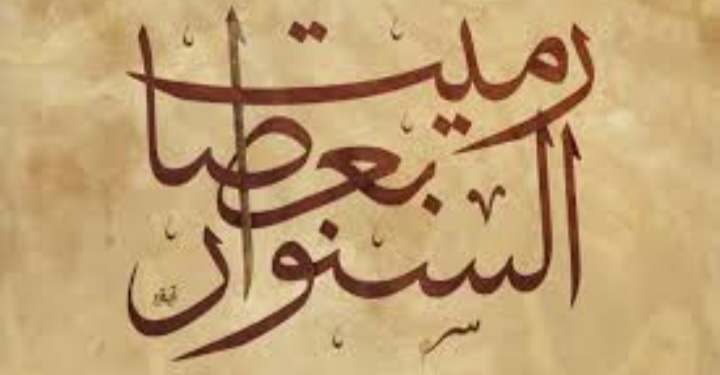 رميت
بعصا
السنوار